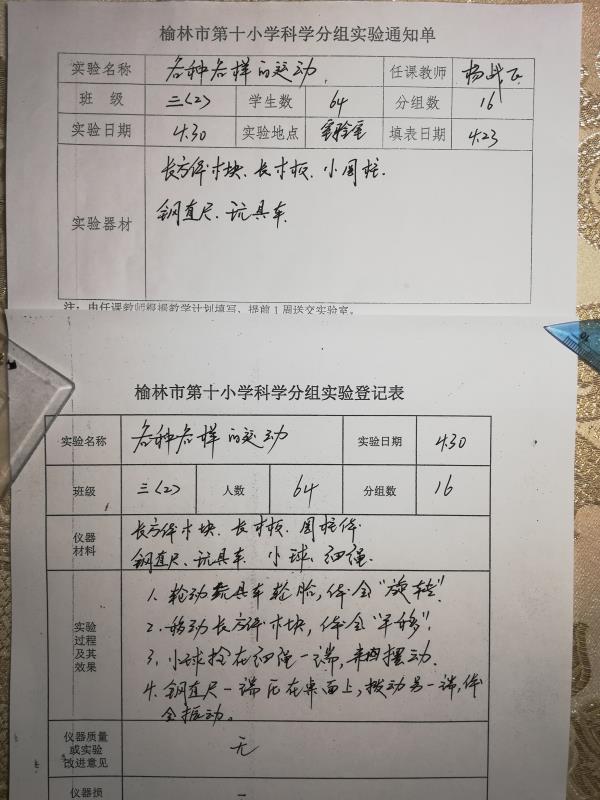 榆林市第十小学科学分组实验通知单
实验名称 各种各样的运动 任课教师 杨
班 级 三(2) 学生数 64 分组数 16
实验日期 4.30 实验地点 实验室 填表日期 4.23
实验器材 长方体木块、长木板、小圆柱.
钢直尺、玩具车
注：由任课教师根据教学计划填写，提前1周送交实验室。
榆林市第十小学科学分组实验登记表
实验名称 各种各样的运动 实验日期 4.30
班级 三(2) 人数 64 分组数 16
仪器材料 长方体木块、长木板、圆柱体
钢直尺、玩具车、小球、细绳.
实验过程及其效果 1、轮动玩具车轮胎,体会"旋转"
2、移动长方体木块,体会"平移".
3、小球拴在细绳一端,来回摆动.
4、钢直尺一端压在桌面上,拨动另一端,体
会振动。
仪器质量或实验改进意见 无
仪器损